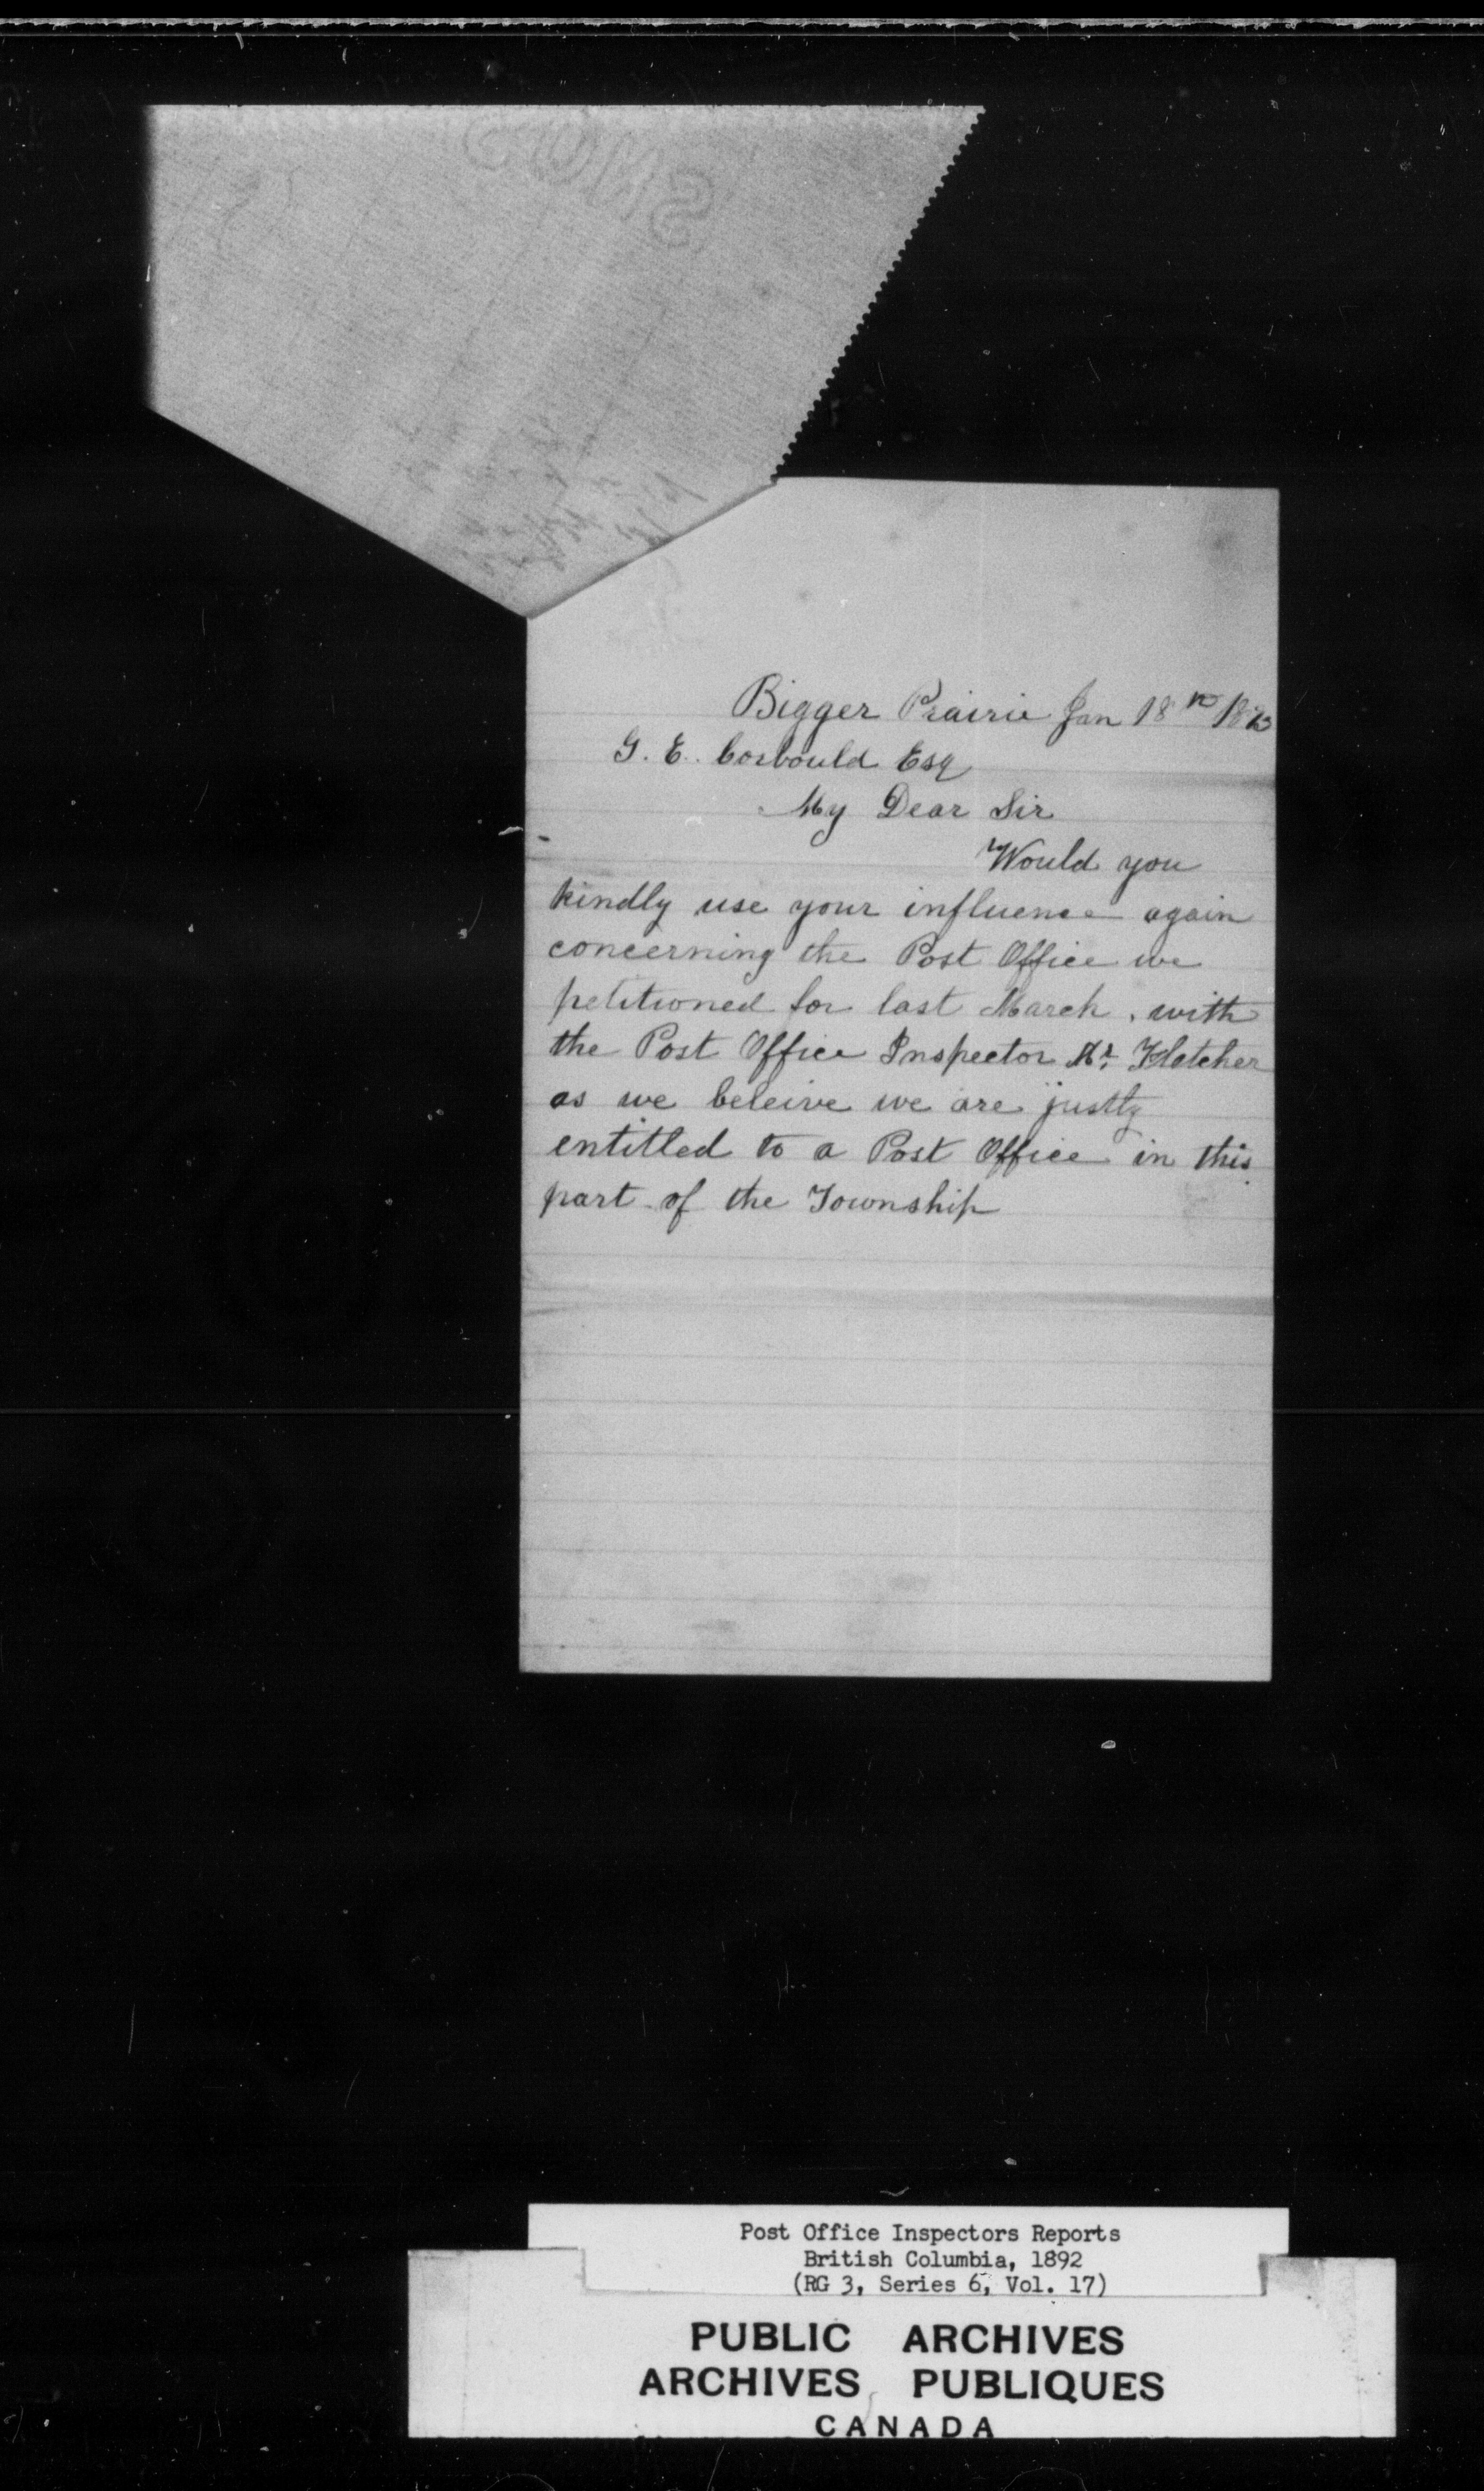 Bigger Prairie Jan 18th
G. E. Corbould Esq
My Dear Sir
Would you
kindly use your influence again
concerning the Post Office we
petitioned for last March, with
the Post Office Inspector Mr. Fletcher
as we beleive we are justly
entitled to a Post Office in this
part of the Township
Post Office Inspectors Reports
British Columbia, 1892
(RG 3, Series 6, Vol. 17)
PUBLIC ARCHIVES
ARCHIVES PUBLIQUES
CANADA